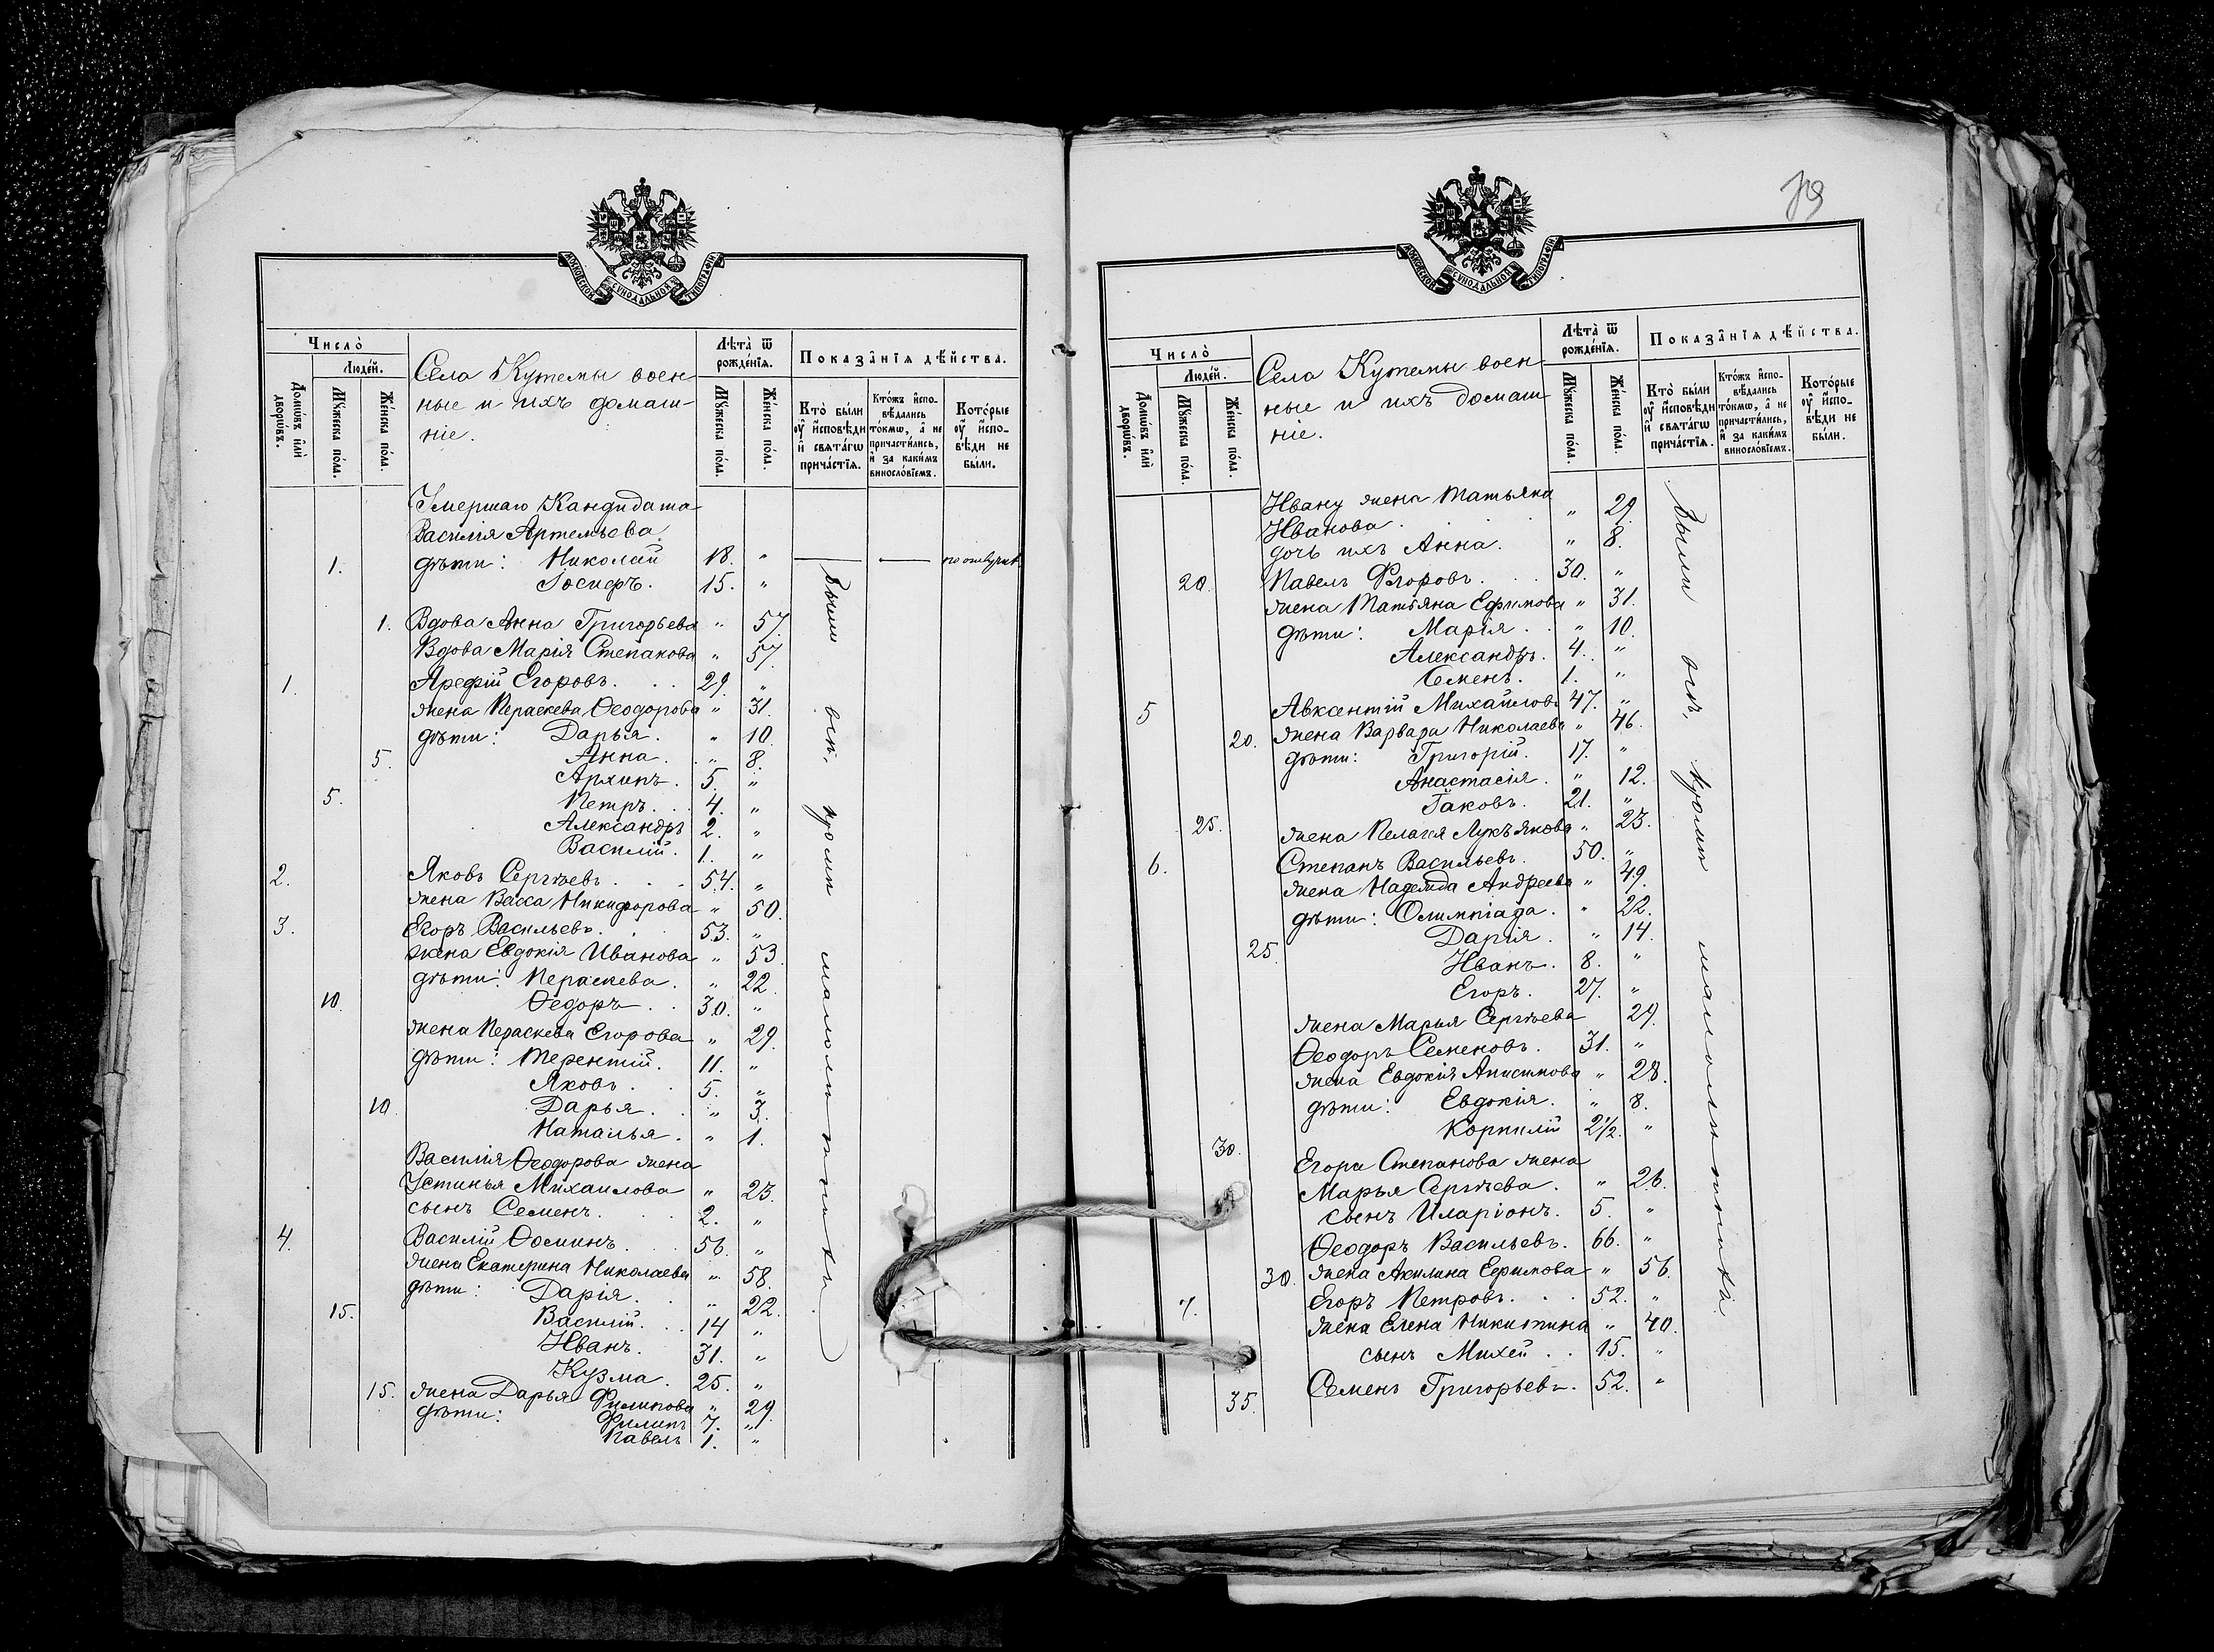 МОСКОВСКОЙ СѴНОДАЛЬНОЙ ТИПОГРАФІИ
Число̀
Люде́й.
Домѡ́въ и҆лѝ дворѡ́въ.
Мꙋ́жеска по́ла.
Же́нска по́ла.
Села Кутемы воен-
ные и ихъ домаш-
ніе.
Лѣта̀ ѿ рожде́нїѧ.
Мꙋ́жеска по́ла.
Же́нска по́ла.
Показа̑нїѧ дѣ́йства.
Кто̀ бы́ли ᲂу҆ и҆сповѣ́ди и҆ свѧта́гѡ прича́стїѧ.
Кто́жъ и҆сповѣ́дались то́кмѡ, а҆ не причасти́лись, и҆ за каки́мъ виносло́вїемъ.
Кото́рые ᲂу҆ и҆сповѣ́ди не бы́ли.
Умершаго Кандидата
Василія Артемьева
1. дѣти: Николай 18. " — — по отлучкѣ
Іосифъ. 15. "
1. Вдова Анна Григорьева " 57.
Вдова Марія Степанова " 57.
1. Арефій Егоровъ. 29. "
жена Параскева Ѳеодорова " 31.
дѣти: Дарья. " 10.
5. Анна. " 8.
Архипъ. 5. "
5. Петръ. 4. "
Александръ 2. "
Василій. 1. "
2. Яковъ Сергѣевъ. 54. "
жена Васса Никифорова " 50.
3. Егоръ Васильевъ. 53. "
жена Евдокія Иванова " 53
дѣти: Пераскева. " 22
10. Ѳедоръ. 30. "
жена Пераскева Егорова " 29.
дѣти: Терентій. 11. "
Яковъ. 5. "
10. Дарья. " 3.
Наталья. " 1.
Василія Ѳеодорова жена
Устинья Михаилова " 23.
сынъ Семенъ. 2. "
4. Василій Ѳоминъ. 56. "
жена Екатерина Николаева " 58.
дѣти: Дарія. " 22.
15. Василій. 14 "
Иванъ. 31. "
Кузма. 25. "
15. жена Дарья Филипова " 29.
дѣти: Филипъ 7. "
Павелъ 1. "
Были всѣ, кромѣ малолѣтнихъ.
МОСКОВСКОЙ СѴНОДАЛЬНОЙ ТИПОГРАФІИ
Число̀
Люде́й.
Домѡ́въ и҆лѝ дворѡ́въ.
Мꙋ́жеска по́ла.
Же́нска по́ла.
Села Кутемы воен-
ные и ихъ домаш-
ніе.
Лѣта̀ ѿ рожде́нїѧ.
Мꙋ́жеска по́ла.
Же́нска по́ла.
Показа̑нїѧ дѣ́йства.
Кто̀ бы́ли ᲂу҆ и҆сповѣ́ди и҆ свѧта́гѡ прича́стїѧ.
Кто́жъ и҆сповѣ́дались то́кмѡ, а҆ не причасти́лись, и҆ за каки́мъ виносло́вїемъ.
Кото́рые ᲂу҆ и҆сповѣ́ди не бы́ли.
Ивану жена Татьяна
Иванова. " 29.
дочь ихъ Анна. " 8.
20. Павелъ Егоровъ. 30. "
жена Татьяна Ефимова " 31.
дѣти: Марія. " 10.
Александръ. 4. "
Семенъ. 1. "
5 Авксентій Михайловъ 47. "
20. жена Варвара Николаева " 46.
дѣти: Григорій. 17. "
Анастасія. " 12.
Іаковъ. 21. "
25. жена Пелагія Лукъянова " 23.
6. Степанъ Васильевъ. 50. "
жена Надежда Андреева " 49.
дѣти: Олимпіада. " 22.
Дарія. " 14.
25. Иванъ. 8. "
Егоръ. 27. "
жена Марья Сергѣева 29.
Ѳеодоръ Семеновъ. 31. "
жена Евдокія Анисимова " 28.
дѣти: Евдокія. " 8.
Корнилій 2½. "
30. Егора Степанова жена
Марья Сергѣева. " 26.
сынъ Иларіонъ. 5. "
Ѳеодоръ Васильевъ. 66. "
30. жена Акилина Ефимова " 56.
7. Егоръ Петровъ. 52. "
жена Елена Никитина " 40.
сынъ Михей. 15. "
35. Семенъ Григорьевъ. 52. "
Были всѣ, кромѣ малолѣтнихъ